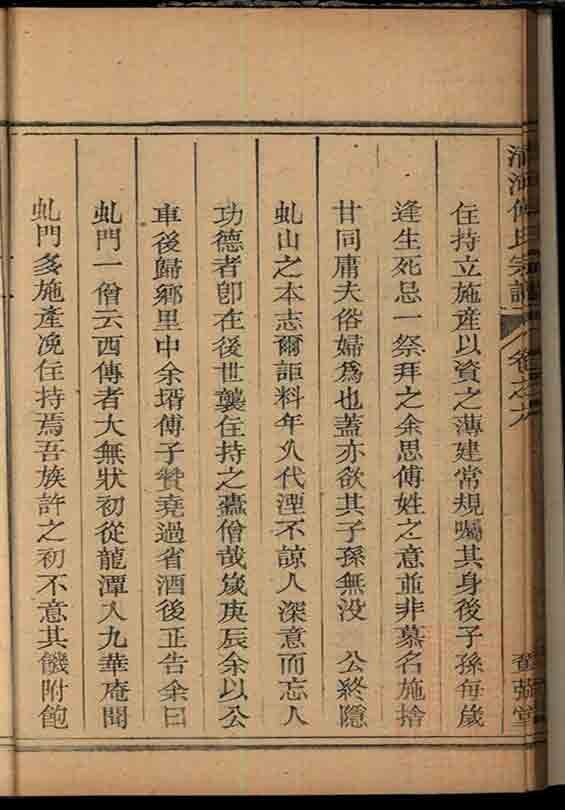 浦沂傅氏宗譜 卷之九
住持立施產以資之溥建常規囑其身後子孫每歲
逢生死忌一祭拜之余思傅姓之意並非慕名施捨
甘同庸夫俗婦爲也蓋亦欲其子孫無没 公終隱
虬山之本志爾詎料年久代湮不諒人深意而忘人
功德者卽在後世襲住持之蠹僧哉歲庚辰余以公
車後歸鄉里中余壻傅子贊堯過省酒後正告余曰
虬門一僧云西傳者大無狀初從龍潭入九華庵聞
虬門多施產凂住持焉吾族許之初不意其饑附飽